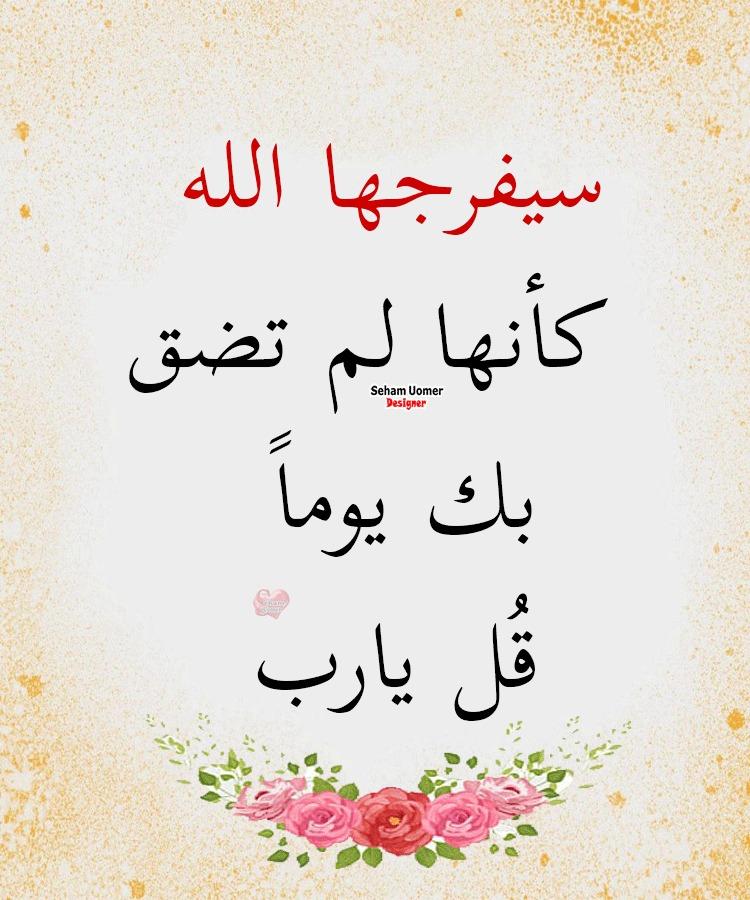 سيفرجها الله
كأنها لم تضق
Seham Uomer
Designer
بك يوماً
قُل يارب